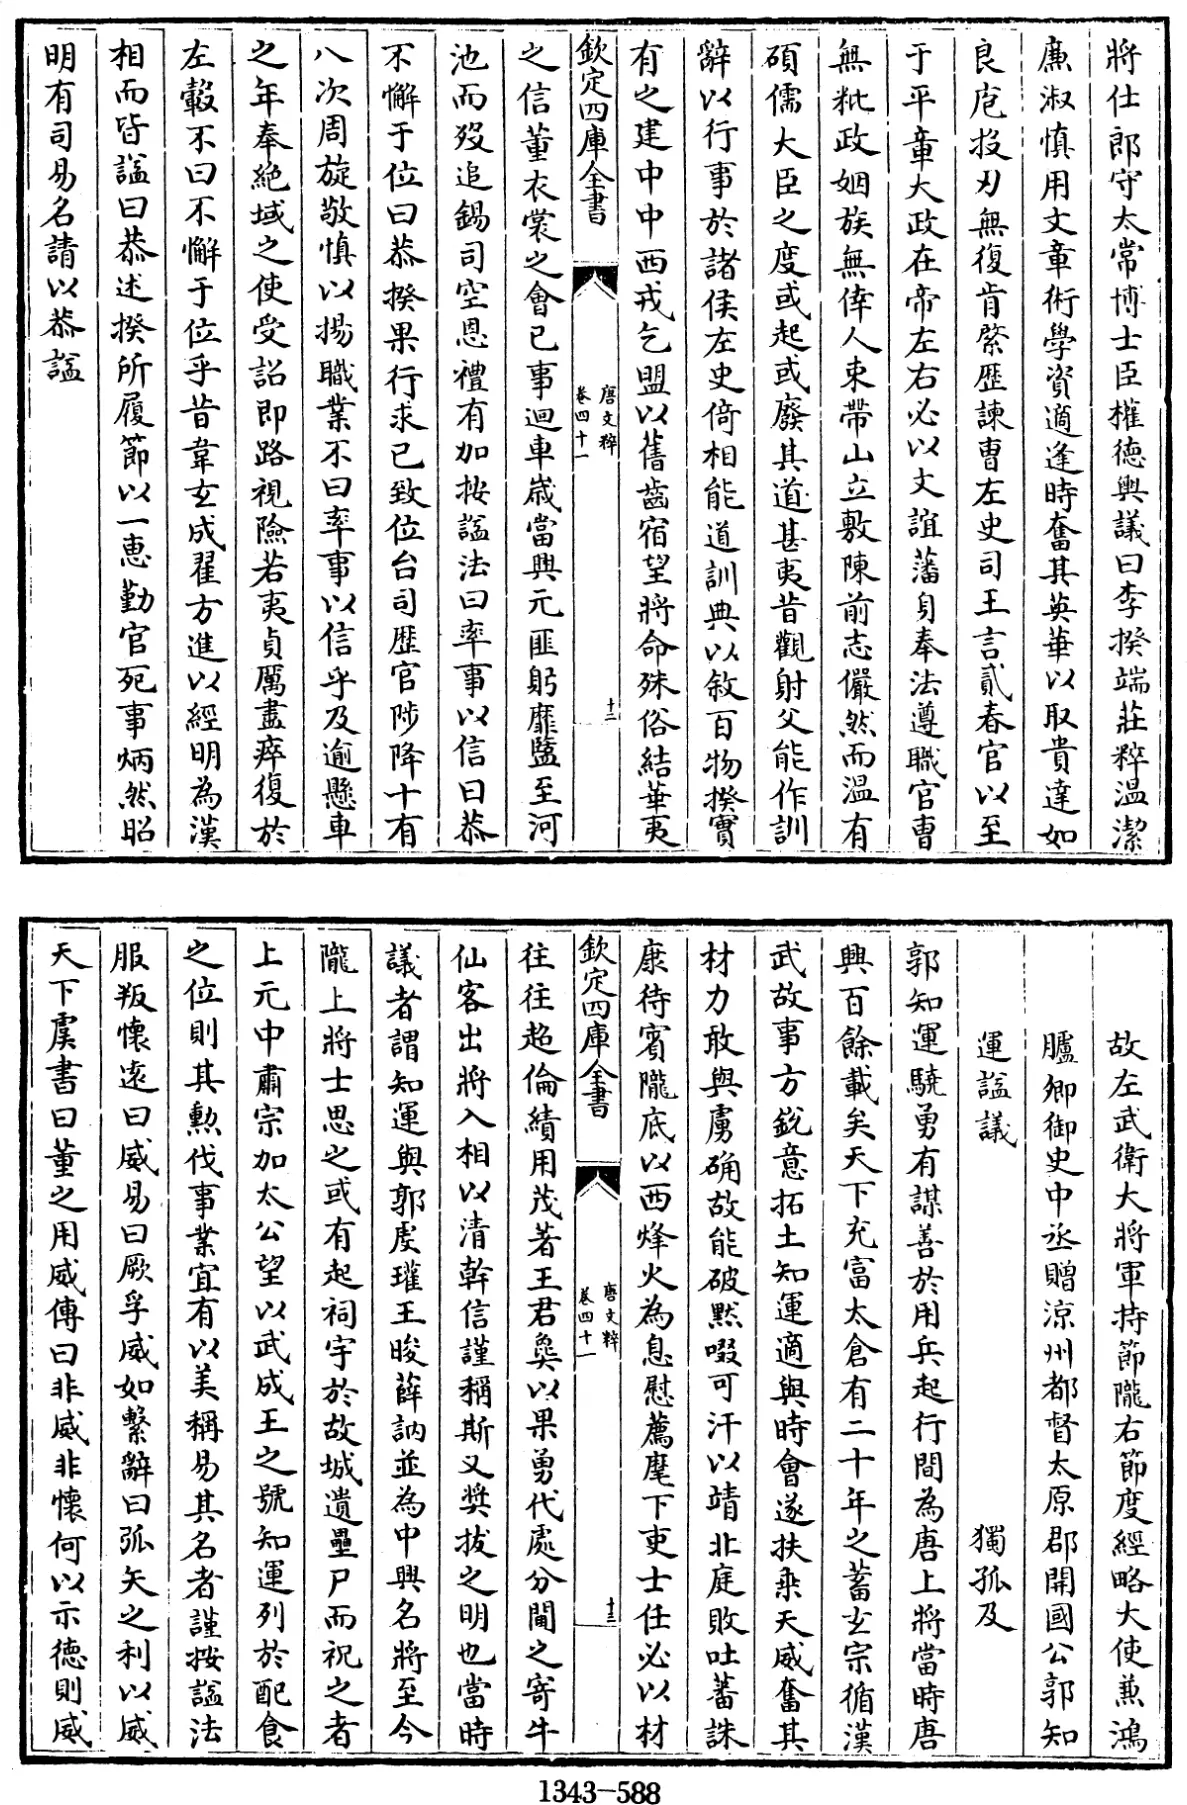 將仕郎守太常博士臣權德輿議曰李揆端莊粹溫潔
廉淑慎用文章術學資適逢時奮其英華以取貴達如
良庖投刃無復肯綮歷諫曹左史司王言貳春官以至
于平章大政在帝左右必以文誼藩身奉法遵職官曹
無粃政姻族無倖人束帶山立敷陳前志儼然而溫有
碩儒大臣之度或起或廢其道甚夷昔觀射父能作訓
辭以行事於諸侯左史倚相能道訓典以敘百物揆實
有之建中中西戎乞盟以舊齒宿望將命殊俗結華夷
欽定四庫全書
唐文粹
卷四十一
十二
之信董衣裳之會已事迴車嵗當興元匪躬靡盬至河
池而歿追錫司空恩禮有加按謚法曰率事以信曰恭
不懈于位曰恭揆果行求已致位台司歷官陟降十有
八次周旋敬慎以揚職業不曰率事以信乎及逾懸車
之年奉絶域之使受詔即路視險若夷貞厲盡瘁復於
左轂不曰不懈于位乎昔韋玄成翟方進以經明為漢
相而皆謚曰恭述揆所履節以一惠勤官死事炳然昭
明有司易名請以恭謚
故左武衛大將軍持節隴右節度經略大使兼鴻
臚卿御史中丞贈涼州都督太原郡開國公郭知
運謚議 獨孤及
郭知運驍勇有謀善於用兵起行間為唐上將當時唐
興百餘載矣天下充富太倉有二十年之蓄玄宗循漢
武故事方銳意拓土知運適與時會遂扶乘天威奮其
材力敢與虜确故能破默啜可汗以靖北庭敗吐蕃誅
康待賓隴底以西烽火為息慰薦麾下吏士任必以材
欽定四庫全書
唐文粹
卷四十一
十三
往往超倫績用茂著王君㚟以果勇代處分閫之寄牛
仙客出將入相以清幹信謹稱斯又奬拔之明也當時
議者謂知運與郭虔瓘王晙薛訥並為中興名將至今
隴上將士思之或有起祠宇於故城遺壘尸而祝之者
上元中肅宗加太公望以武成王之號知運列於配食
之位則其勲伐事業宜有以美稱易其名者謹按謚法
服叛懷遠曰威易曰厥孚威如繫辭曰弧矢之利以威
天下虞書曰董之用威傳曰非威非懷何以示德則威
1343-588